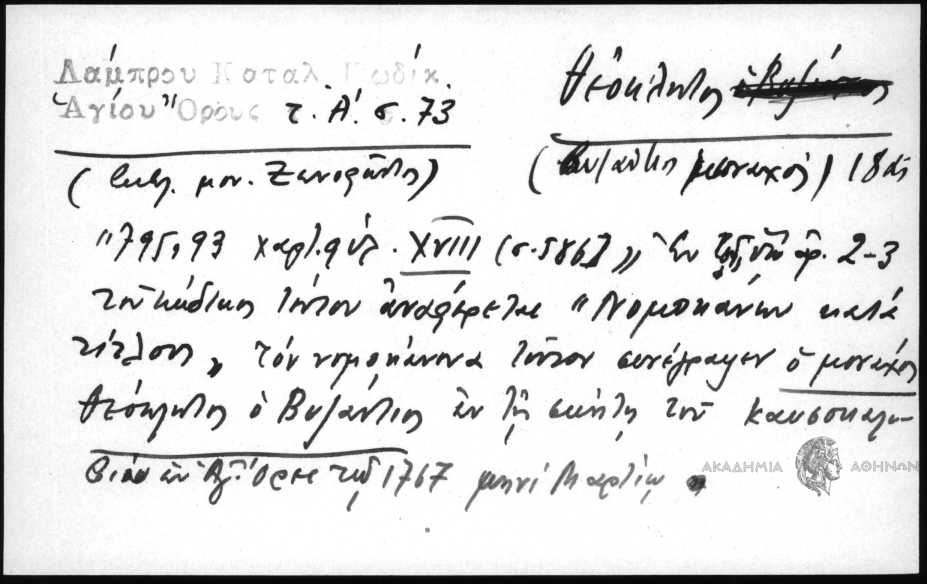 Λάμπρου Καταλ. Κωδίκ.
Ἁγίου Ὄρους τ. Α΄. σ. 73
Θεόκλητος ὁ Βυζάντιος
(Βιβλ. μον. Ξενοφῶντος)
(Βυζάντιος μοναχός) 18ος
"795,93 χαρτ. φύλ. XVIII (σ. 586) „ Ἐν ἀρ. 2-3
τοῦ κώδικος τούτου ἀναφέρεται "Νομοκάνων κατὰ
τίτλους „ τὸν νομοκάνονα τοῦτον συνέγραψεν ὁ μοναχὸς
Θεόκλητος ὁ Βυζάντιος ἐν τῇ σκήτῃ τοῦ Καυσοκαλυ-
βίου ἐν Ἁγ. Ὄρει τῷ 1767 μηνὶ Μαρτίῳ.
ΑΚΑΔΗΜΙΑ ΑΘΗΝΩΝ